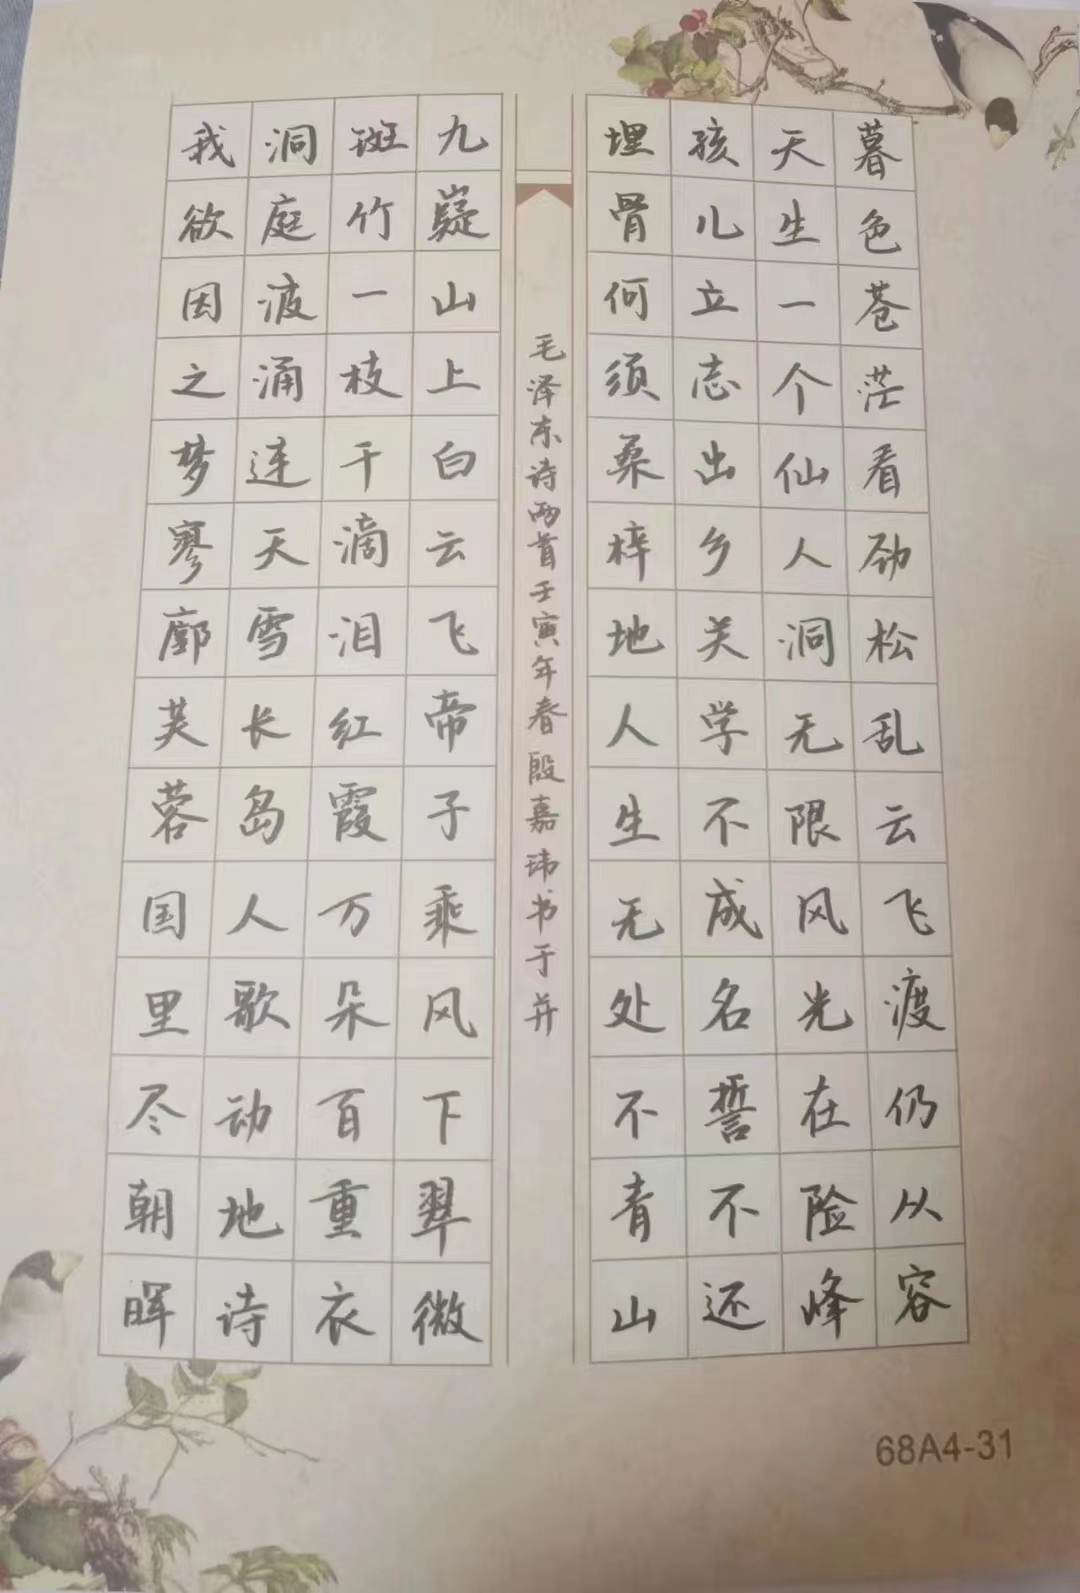 暮色苍茫看劲松乱云飞渡仍从容
天生一个仙人洞无限风光在险峰
孩儿立志出乡关学不成名誓不还
埋骨何须桑梓地人生无处不青山
毛泽东诗两首壬寅年春殷嘉玮书于并
九嶷山上白云飞帝子乘风下翠微
斑竹一枝千滴泪红霞万朵百重衣
洞庭波涌连天雪长岛人歌动地诗
我欲因之梦寥廓芙蓉国里尽朝晖
68A4-31